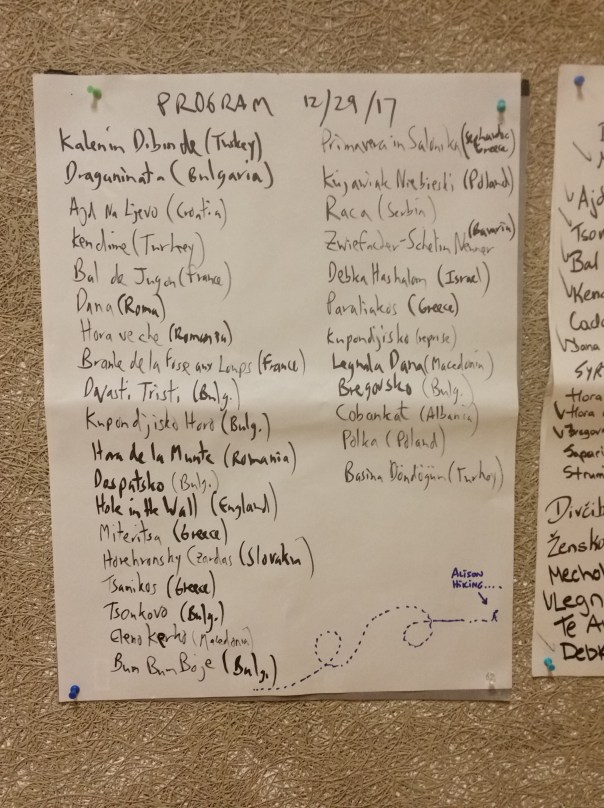 PROGRAM 12/29/17
Kalenin Dibinde (Turkey)
Draganinata (Bulgaria)
Ajd Na Ljevo (Croatia)
Kendime (Turkey)
Bal de Jugon (France)
Dana (Roma)
Hora veche (Romania)
Branle de la Fosse aux Loups (France)
Davasti Tristi (Bulg.)
Kupondjisko Horo (Bulg.)
Hora de la Munte (Romania)
Dospatsko (Bulg.)
Hole in the Wall (England)
Miteritsa (Greece)
Horehronsky Czardas (Slovakia)
Tsamikos (Greece)
Tsonkovo (Bulg.)
Eleno Kerko (Macedonia)
Bum Bum Boje (Bulg.)
Primavera in Salonika (Sephardic Greece)
Kujawiak Niebieski (Poland)
Raca (Serbia)
Zwiefacher- (Bavaria)
Debka Hashalom (Israel)
Paraliakos (Greece)
Kupondjisko (reprise)
Legnala Dana (Macedonia)
Bregovsko (Bulg.)
Cobankat (Albania)
Polka (Poland)
Basina Döndügüm (Turkey)
ALISON
HIKING....
Bal
Dana
Hora
Hora
Bregov
Divčib
Žensko
Legn
Debk